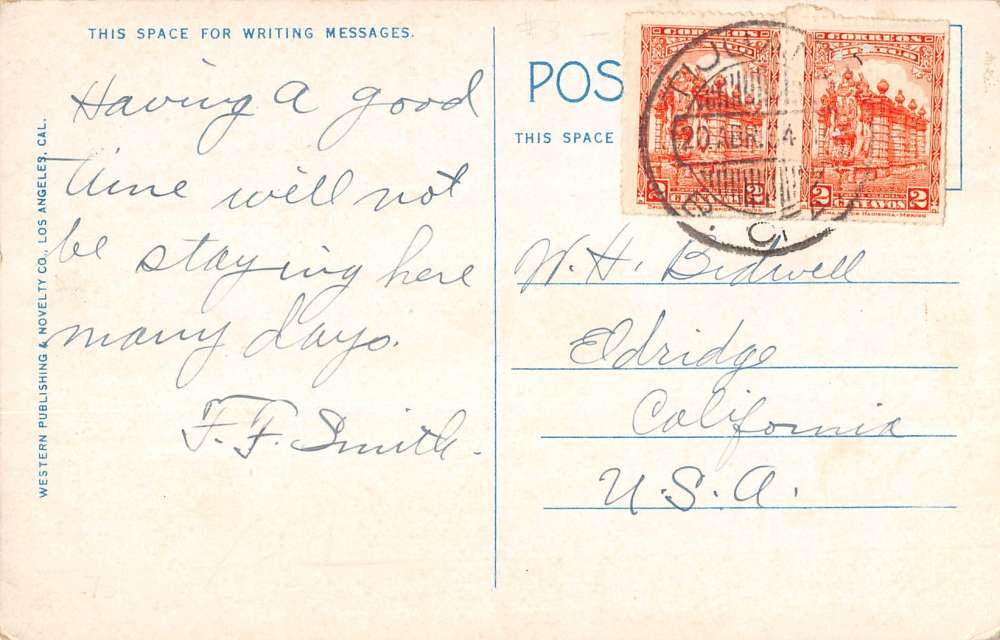 THIS SPACE FOR WRITING MESSAGES.
Having a good
time will not
be staying here
many days.
F. F. Smith.
WESTERN PUBLISHING & NOVELTY CO., LOS ANGELES, CAL.
POS
THIS SPACE
CORREOS
CORREOS
MEXICO
20 ABR. 34
2 2
2 CENTAVOS 2
W. H. Bidwell
Eldridge
California
U.S.A.